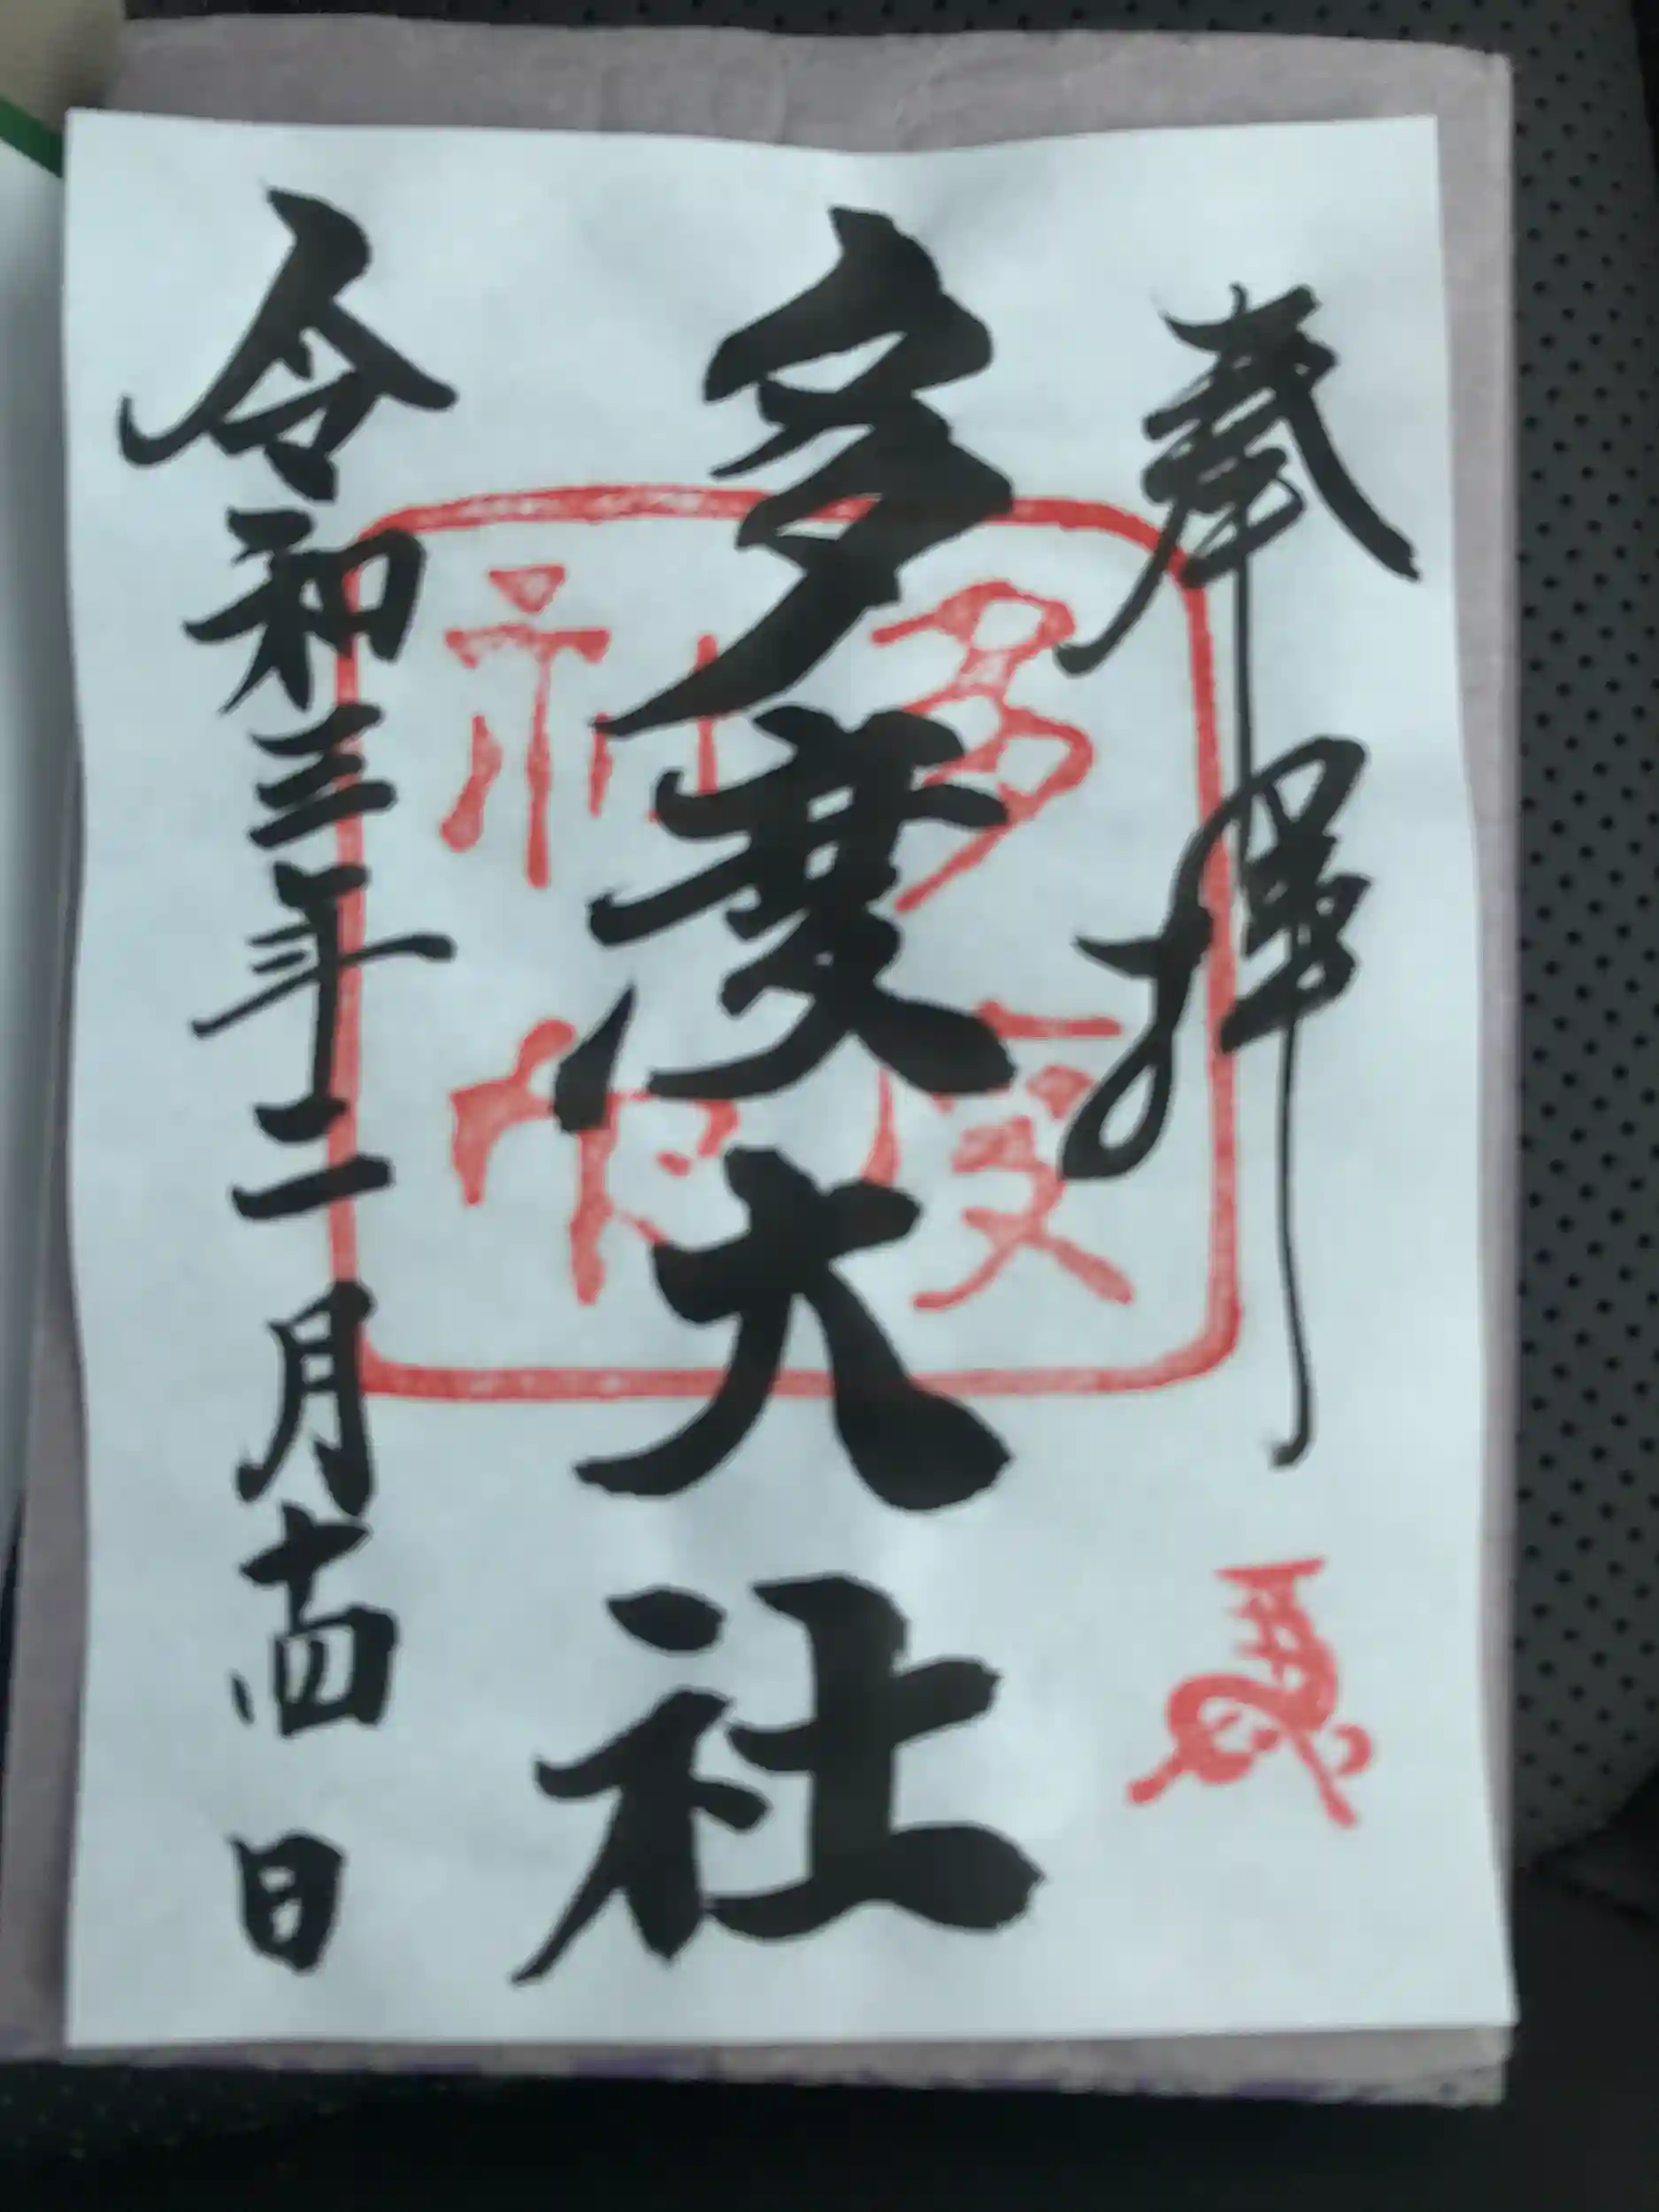 奉拝
多度大社
令和三年二月十四日
多度神社